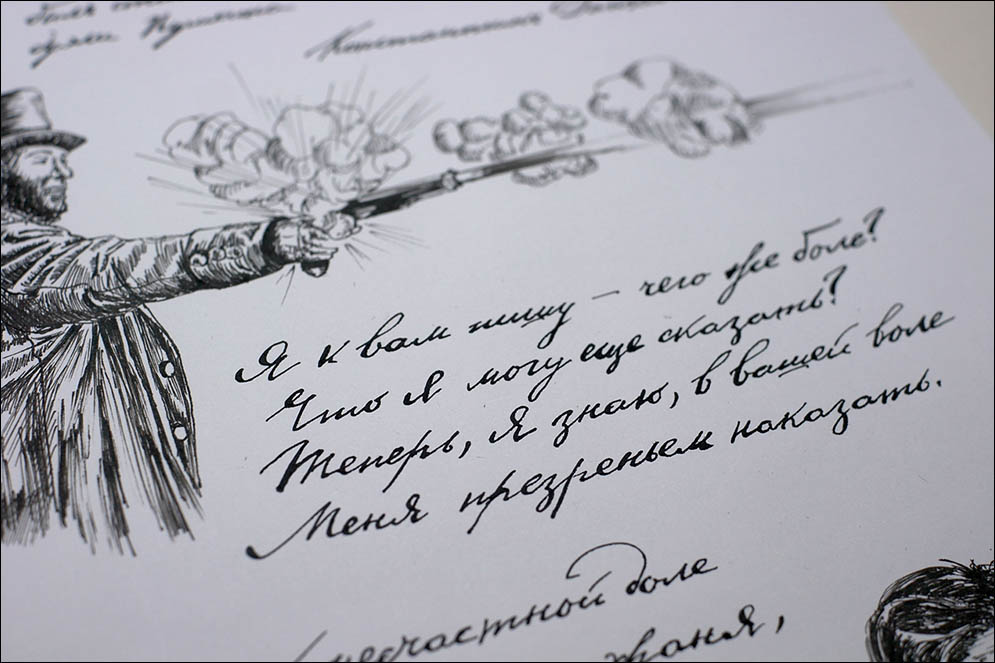 Константина
Я к вам пишу – чего же боле?
Что я могу еще сказать?
Теперь, я знаю, в вашей воле
Меня презреньем наказать.
несчастной доле